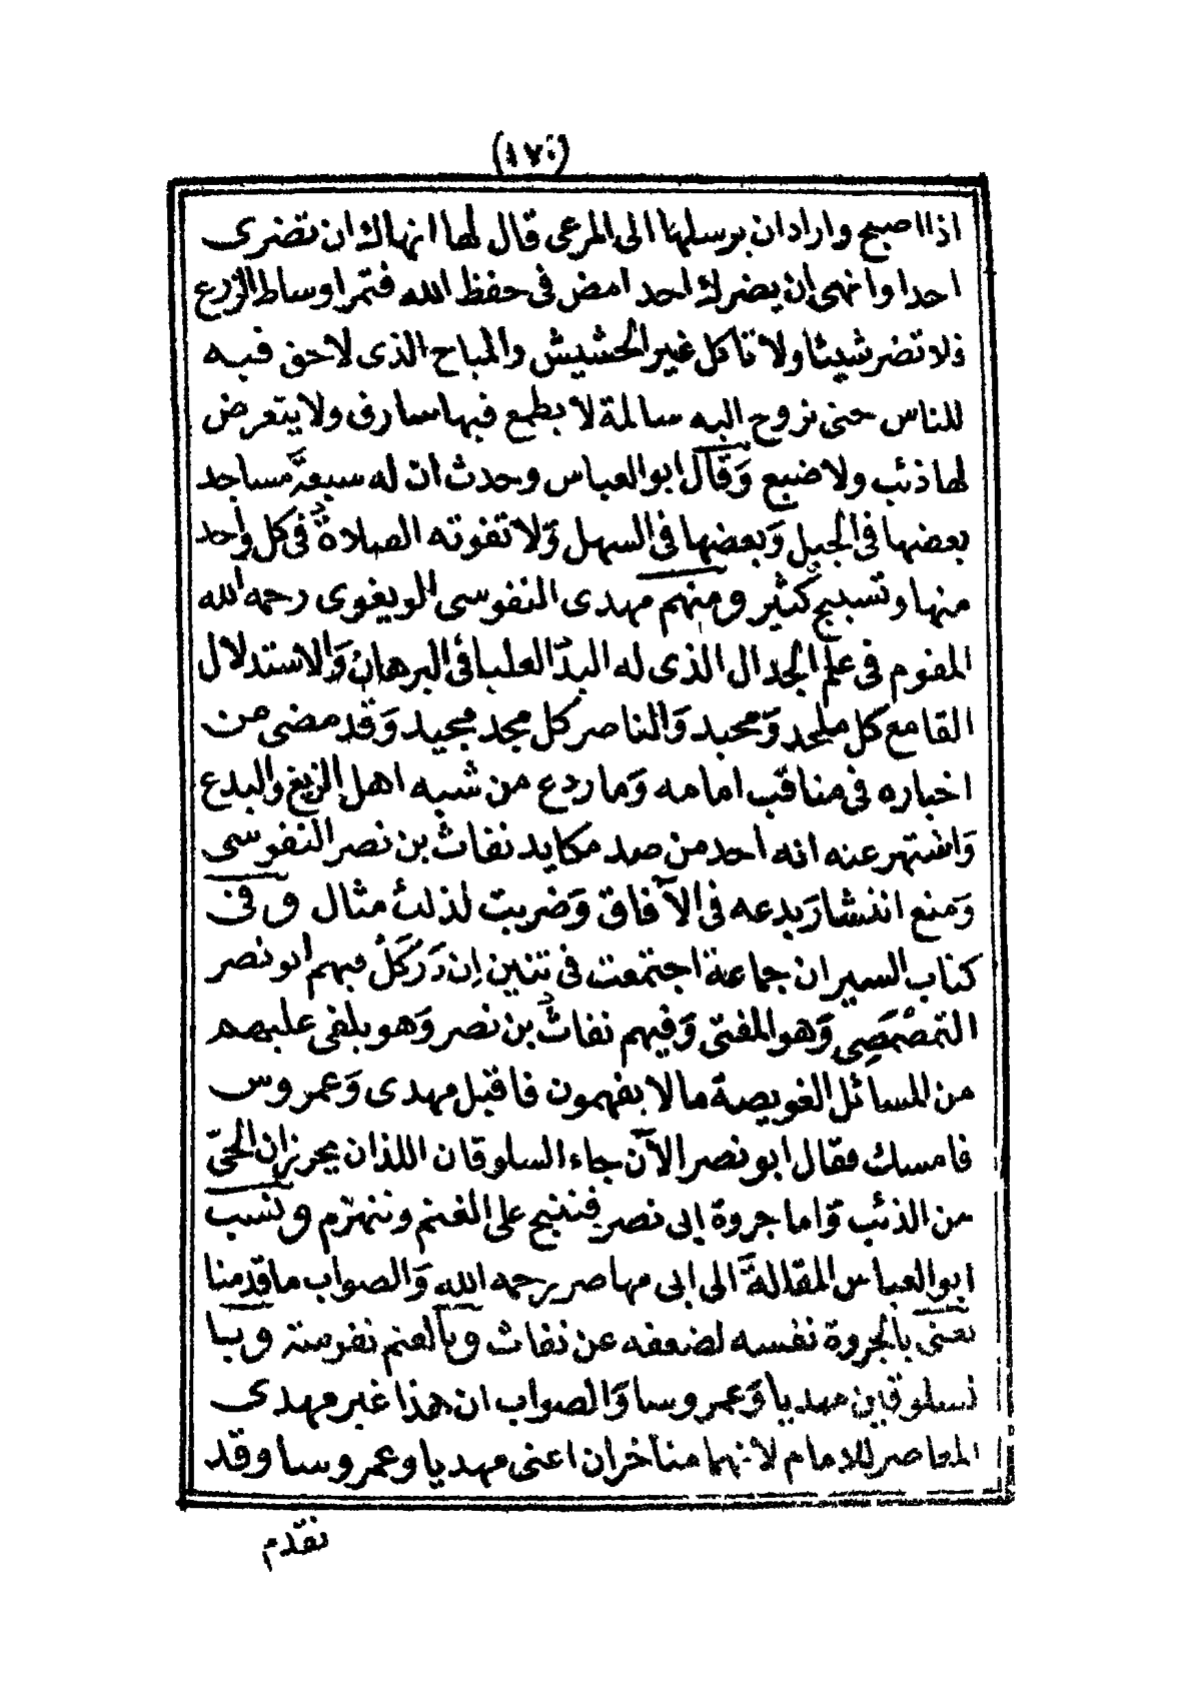 (١٧٠)
اذا اصبح واراد ان يرسلها الى المرعى قال لها انهاك ان تضرى
احدا وانهى ان يضرك احد امض فى حفظ الله فتمر اوساط الزرع
فلا تضر شيئا ولا تاكل غير الحشيش والمباح الذى لاحق فيه
للناس حتى تروح اليه سالمة لا يطمع فيها سارق ولا يتعرض
لها ذئب ولا ضبع وَقال ابو العباس وحدث ان له سبعة مساجد
بعضها فى الجبل وَبعضها فى السهل وَلا تفوته الصلاة فى كل واحد
منها وتسبيح كثير ومنهم مهدى النفوسى الويغوى رحمه الله
المفوم فى علم الجدال الذى له اليدّ العليا فى البرهان وَالاستدلال
القامع كل ملحد وَمحيد وَالناصر كل مجد مجيد وَقد مضى من
اخباره فى مناقب امامه وَما ردع من شبه اهل الزيغ والبدع
وَاشتهر عنه انه احد من صد مكايد نفاث بن نصر النفوسى
وَمنع انتشار بدعه فى الآفاق وَضربت لذلك مثال وفى
كتاب السير ان جماعة اجتمعت فى تنين اِن دَرْكَلُ فيهم ابو نصر
التمصْمَصِى وَهو المفتى وَفيهم نفاث بن نصر وَهو يلقى عليهم
من المسائل الغويصة ما لا يفهمون فاقبل مهدى وَعمروس
فامسك فقال ابو نصر الآن جاء السلوقان اللذان يحرزان الحىّ
من الذئب وَاما جروة ابى نصر فتنبح على الغنم وتنهزم ونسب
ابو العباس المقالة الى ابى مهاصر رحمه الله وَالصواب ما قدمنا
تعنى بالجروة نفسه لضعفه عن نفاث وبالغنم نفرسته وبا
لسلوقاين مهديا وَعمروسا وَالصواب ان هذا غير مهدى
المعاصر للامام لانهما متاخران اعنى مهديا وعمروسا وقد
تقدّم